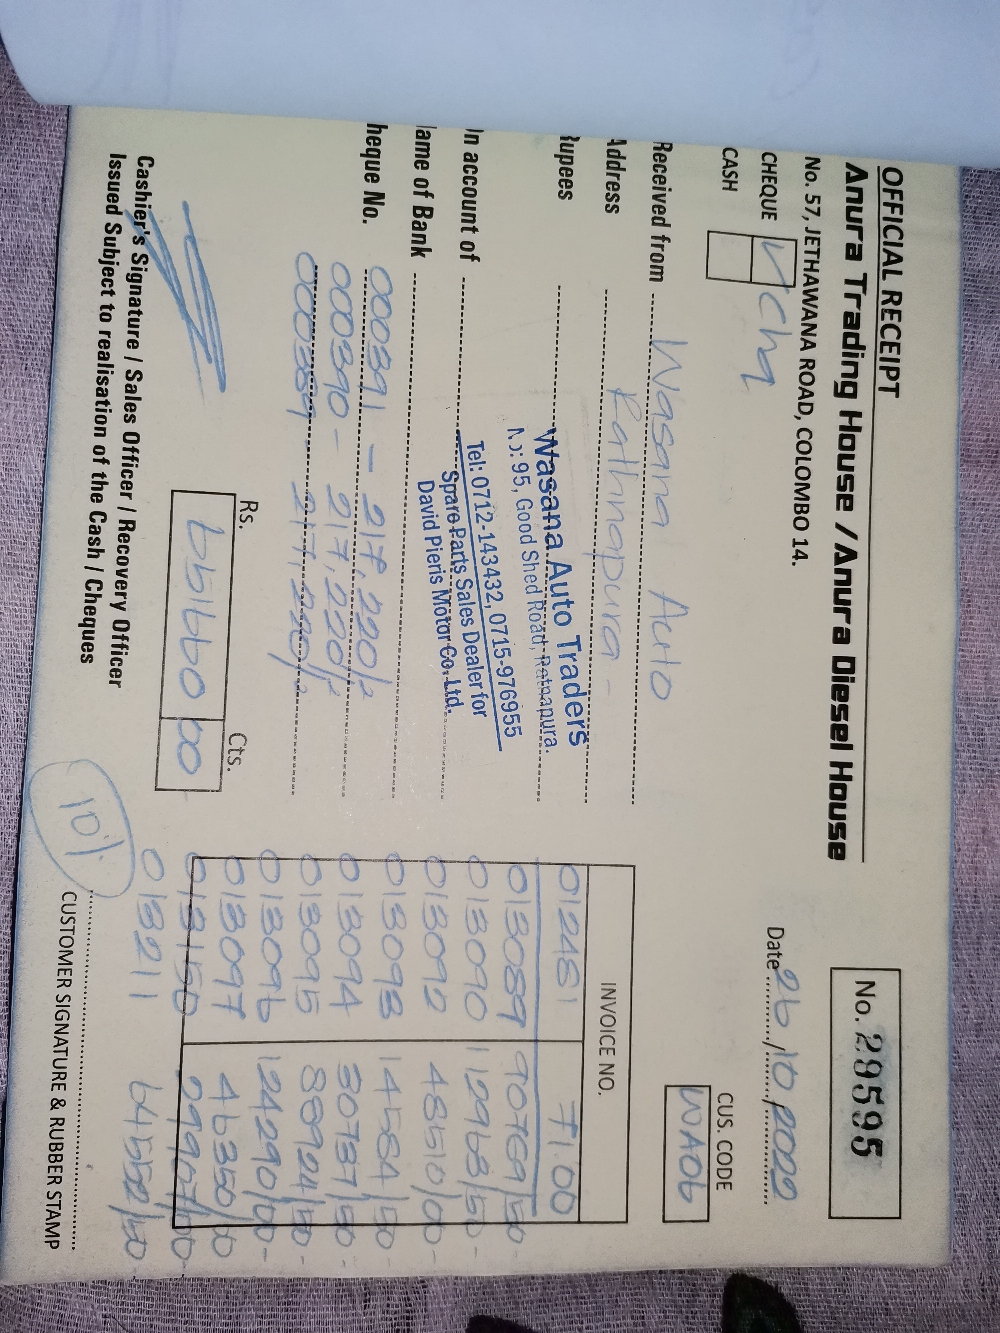 OFFICIAL RECEIPT
Anura Trading House / Anura Diesel House
No. 57, JETHAWANA ROAD, COLOMBO 14.
No. 29595
CHEQUE
CASH
Date 26/10/2022
CUS. CODE
WA06
Received from Wasana Auto
Address Rathnapura -
Rupees
Wasana Auto Traders
No: 95, Good Shed Road, Ratnapura.
Tel: 0712-143432, 0715-976955
Spare Parts Sales Dealer for
David Pieris Motor Co. Ltd.
On account of
Name of Bank
Cheque No. 000391 - 217,220/=
000390 - 217,220/=
000389 - 217,220/=
INVOICE NO.
012481 71.00
013089 90769/50
013090 112968/50
013092 48510/00
013093 14584/50
013094 30787/50
013095 88924/50
013096 124290/00
013097 46350/00
013150 29907/00
013211 64552/50
Rs. Cts.
651660 00
10%
Cashier's Signature / Sales Officer / Recovery Officer
Issued Subject to realisation of the Cash / Cheques
CUSTOMER SIGNATURE & RUBBER STAMP